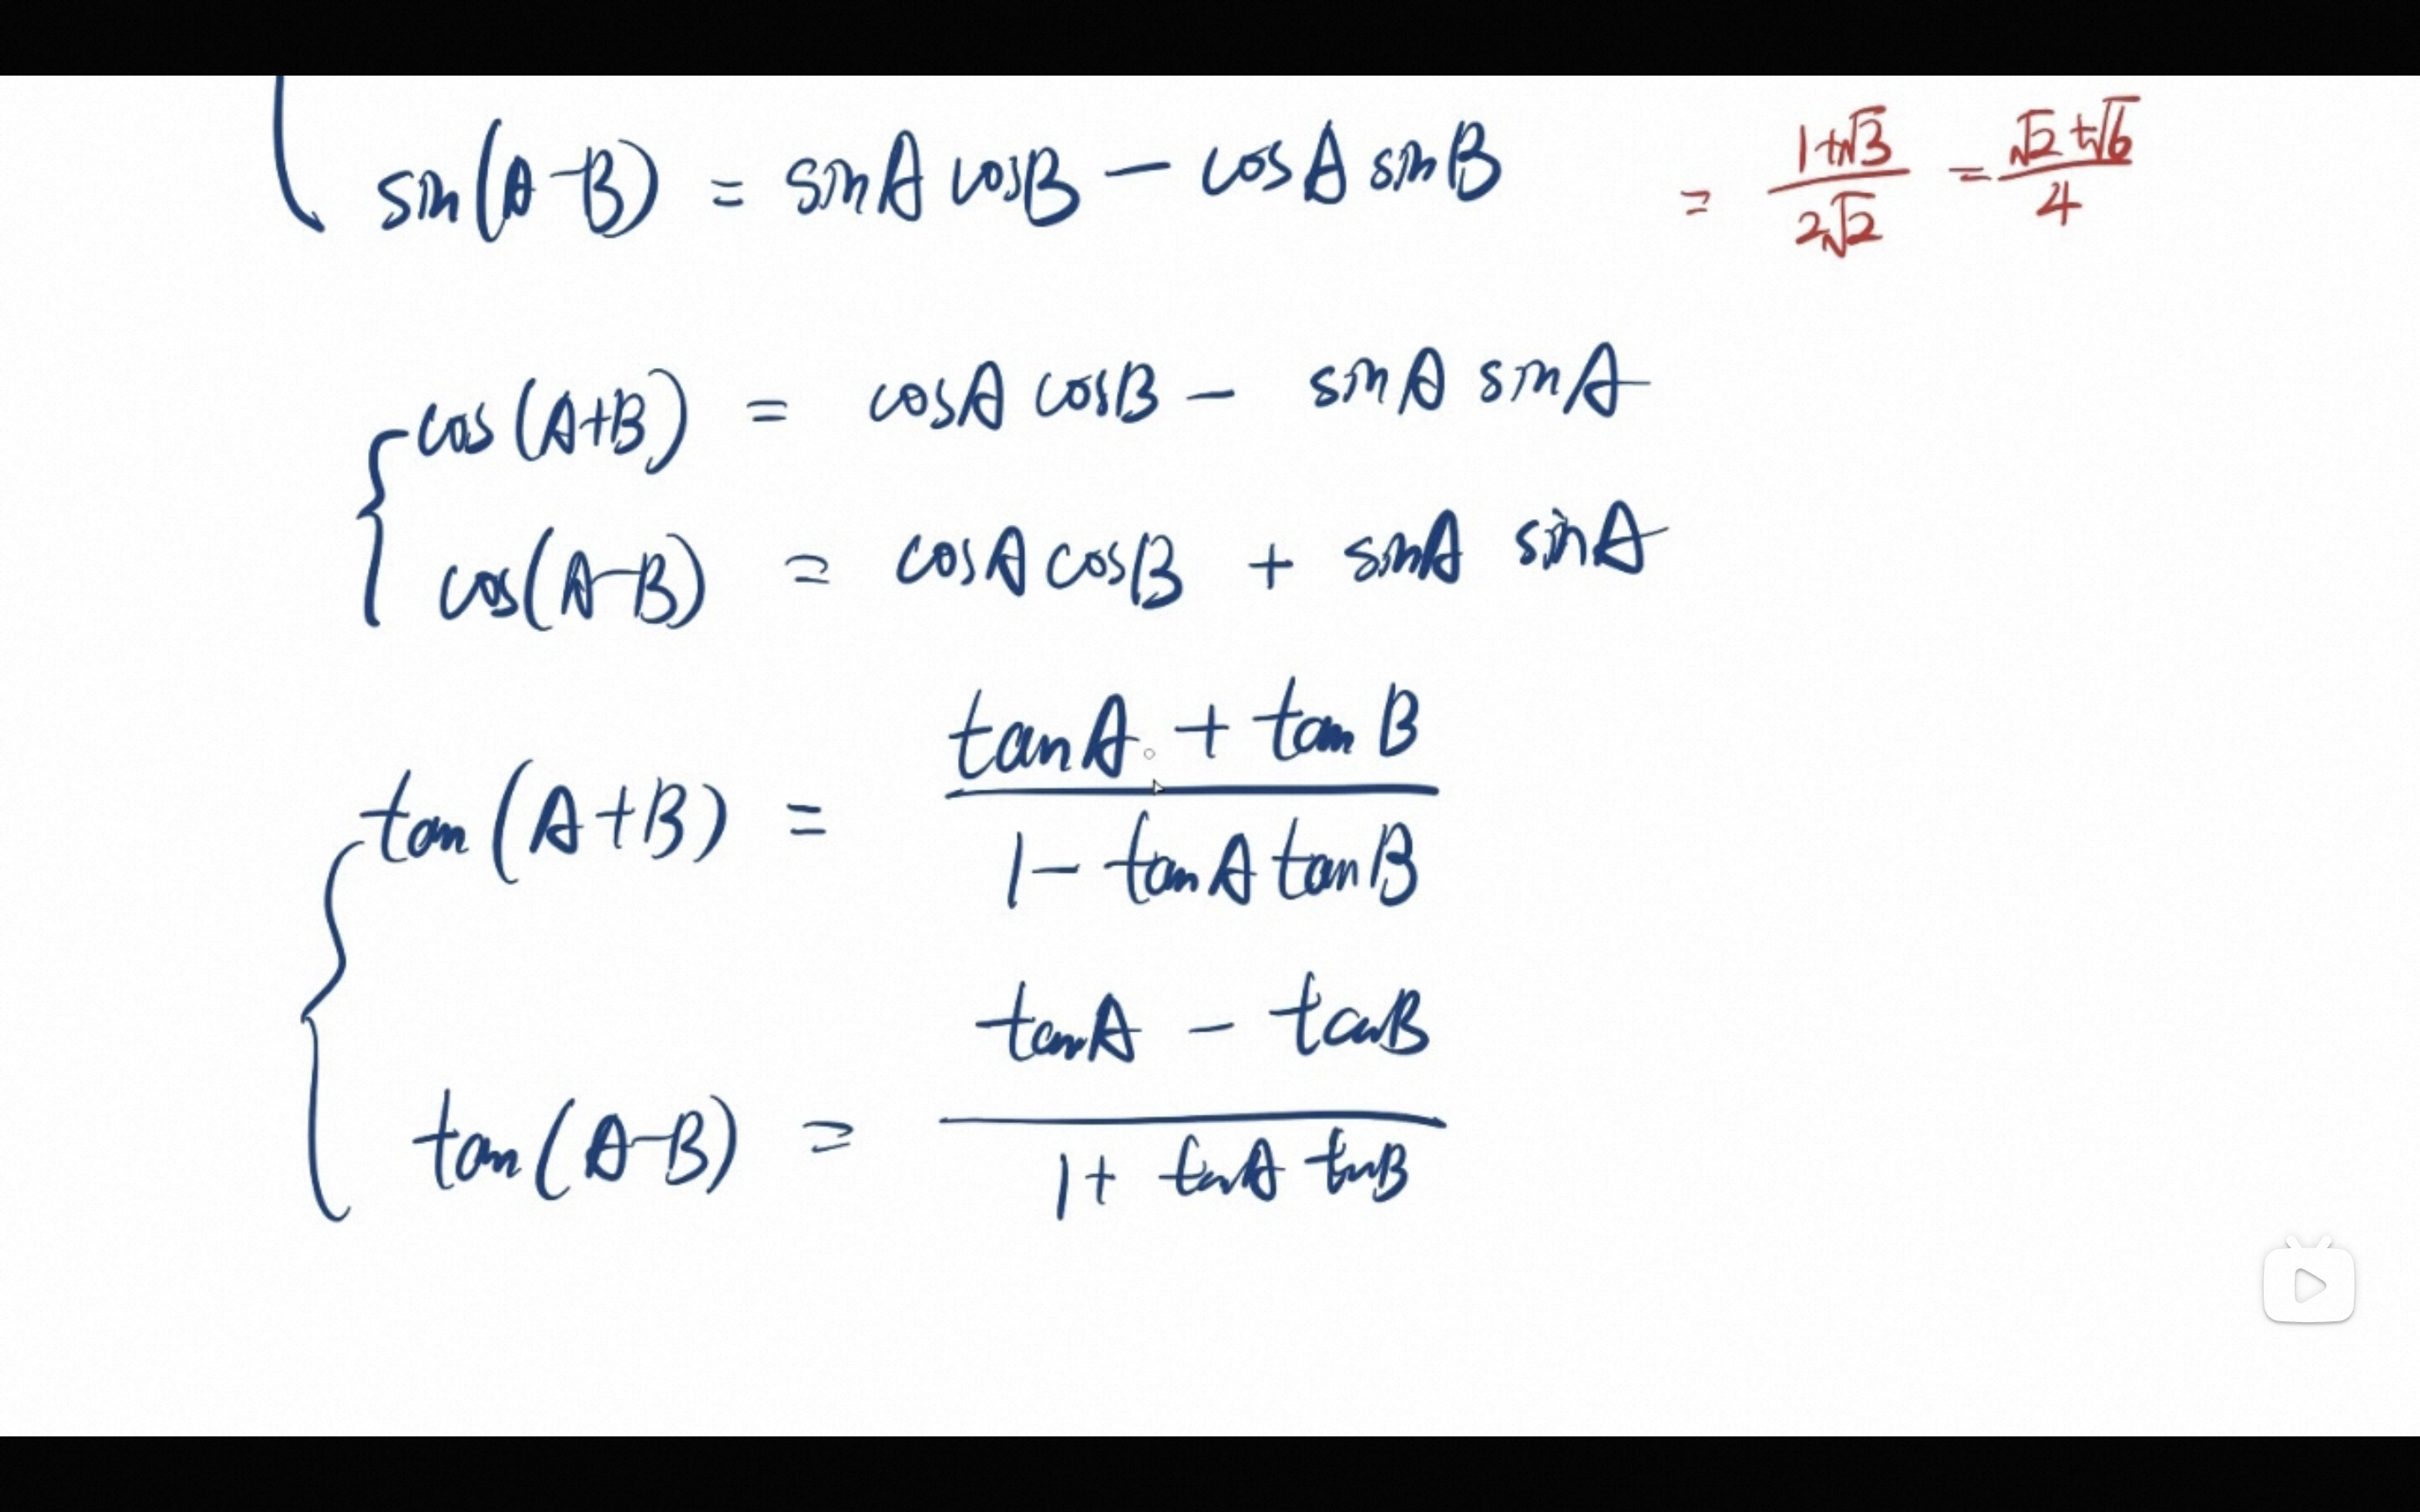 sin(A-B) = sinA cosB - cosA sinB = (1+√3)/(2√2) = (√2+√6)/4
cos(A+B) = cosA cosB - sinA sinA
cos(A-B) = cosA cosB + sinA sinA
tan(A+B) = (tanA + tanB)/(1 - tanA tanB)
tan(A-B) = (tanA - tanB)/(1 + tanA tanB)